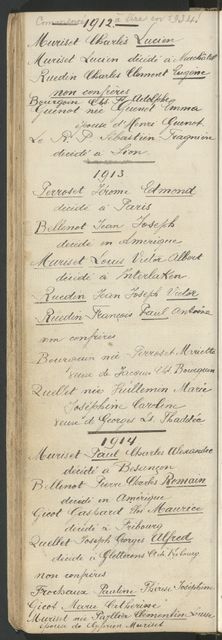 Commencé à lire en 1934.
1912
Muriset Charles Lucien
Muriset Lucien décédé à Neuchâtel
Ruedin Charles Clément Eugène
non confrères
Bourgoin Chs Fs Adolphe
Quenot née Quenot Emma
épouse d'Henri Quenot
Le R. P. Sébastien Fragnière
décédé à Sion
1913
Perroset Jérôme Edmond
décédé à Paris
Bellenot Jean Joseph
décédé en Amérique
Muriset Louis Victor Albert
décédé à Interlaken
Ruedin Jean Joseph Victor
Ruedin François Paul Antoine
non confrères
Bourgoin née Perroset Mariette
veuve de Jacques Chs Bourgoin
Quellet née Vuillemin Marie
Joséphine Caroline
veuve de Georges Ls Thadée
1914
Muriset Paul Charles Alexandre
décédé à Besançon
Bellenot Pierre Charles Romain
décédé en Amérique
Gicot Gaspard Maurice
décédé à Fribourg
Quellet Joseph Georges Alfred
décédé à Gletterens Cn de Fribourg
non confrères
Frochaux Pauline Thérèse Joséphine
Gicot Marie Catherine
Muriset née Clémentine
épouse de Cyprien Muriset